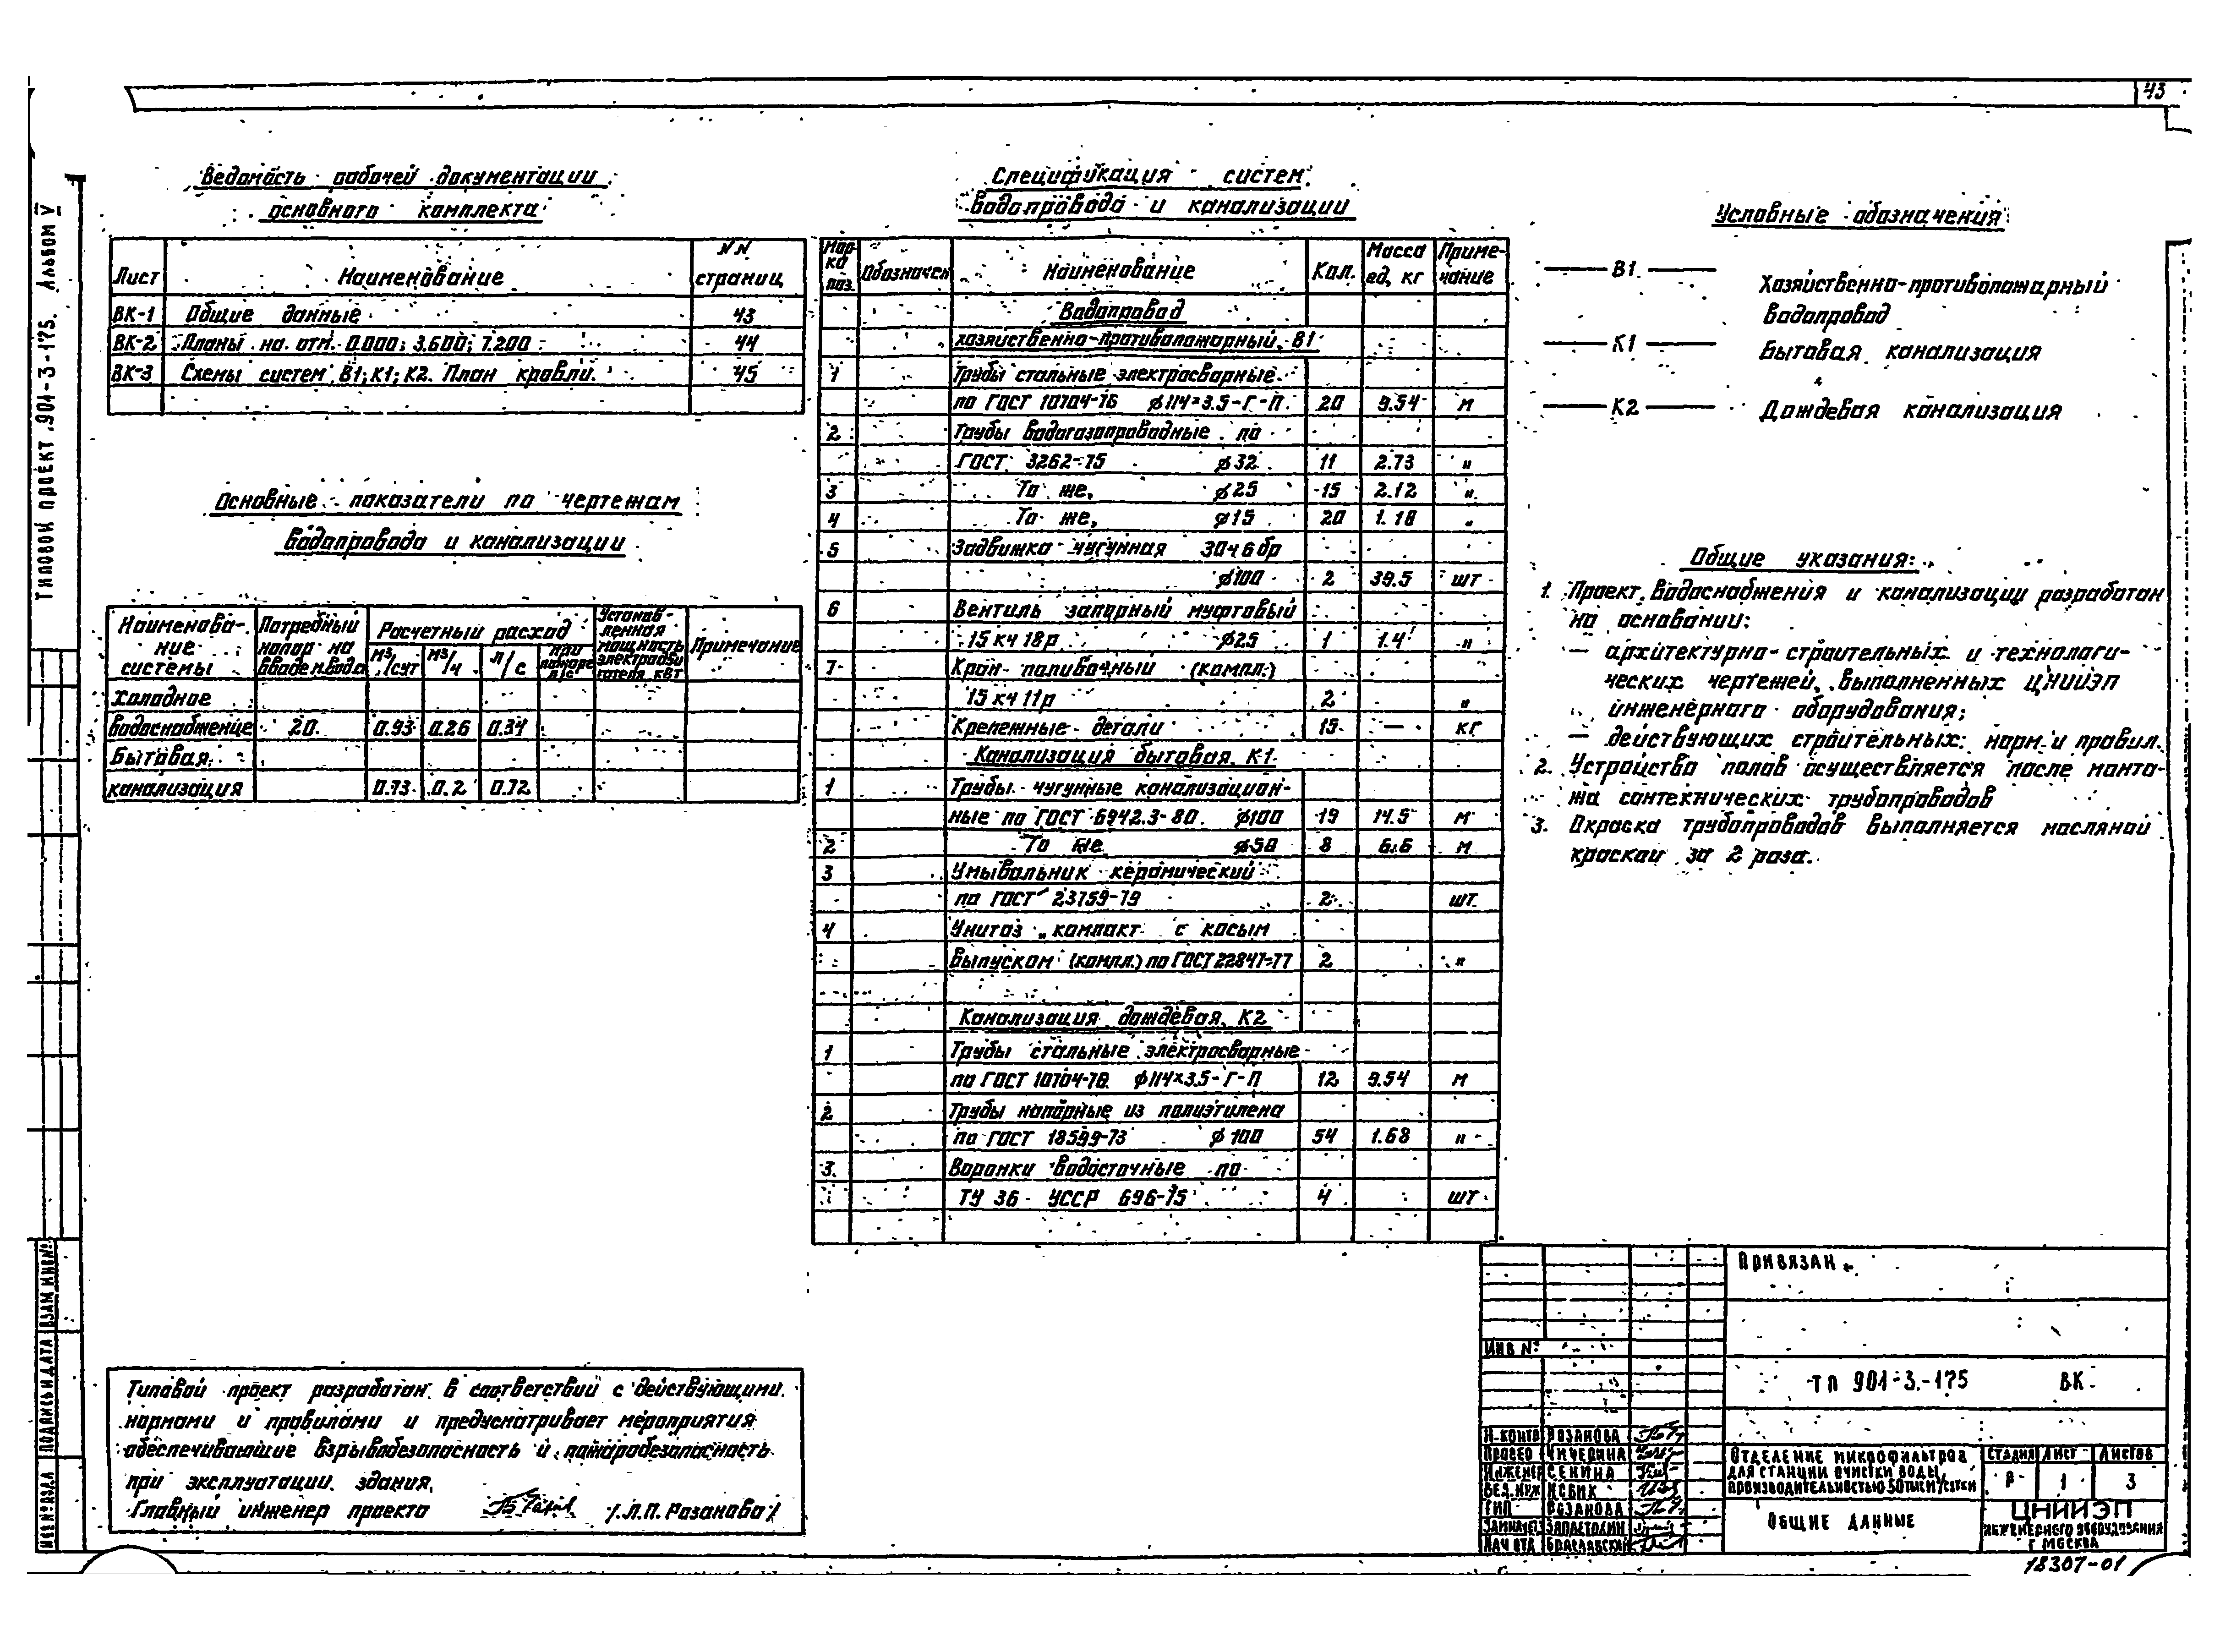 43
Типовой проект 901-3-175. Альбом V
Ведомость рабочей документации
основного комплекта
Лист Наименование NN страниц
ВК-1 Общие данные 43
ВК-2 Планы на отм. 0.000; 3.600; 7.200 44
ВК-3 Схемы систем В1; К1; К2. План кровли. 45
Основные показатели по чертежам
водопровода и канализации
Наименова-
ние
системы
Потребный
напор на
вводе м.вода
Расчетный расход
м³/сут м³/ч л/с при пожаре л/с
Установ-
ленная
мощность
электродви
гателя кВт
Примечание
Холодное
водоснабжение 20. 0.93 0.26 0.34
Бытовая
канализация 0.73 0.2 0.72
Типовой проект разработан в соответствии с действующими
нормами и правилами и предусматривает мероприятия
обеспечивающие взрывобезопасность и пожаробезопасность
при эксплуатации здания.
Главный инженер проекта /Л.П. Розанова/
Спецификация систем
водопровода и канализации
Мар-
ка
поз.
Обозначен Наименование Кол. Масса ед, кг Приме-
чание
Водопровод
хозяйственно-противопожарный, В1
1 Трубы стальные электросварные
по ГОСТ 10704-76 ⌀114×3.5-Г-П 20 9.54 м
2 Трубы водогазопроводные по
ГОСТ 3262-75 ⌀32 11 2.73 "
3 То же, ⌀25 15 2.12 "
4 То же, ⌀15 20 1.18 "
5 Задвижка чугунная 30ч6бр
⌀100 2 39.5 шт
6 Вентиль запорный муфтовый
15кч18р ⌀25 1 1.4 "
7 Кран поливочный (компл.)
15кч11р 2 "
Крепежные детали 15 — кг
Канализация бытовая, К1
1 Трубы чугунные канализацион-
ные по ГОСТ 6942.3-80. ⌀100 19 14.5 м
2 То же ⌀50 8 6.6 м
3 Умывальник керамический
по ГОСТ 23759-79 2 шт
4 Унитаз „компакт с косым
выпуском (компл.) по ГОСТ 22847-77 2 "
Канализация дождевая, К2
1 Трубы стальные электросварные
по ГОСТ 10704-76. ⌀114×3.5-Г-П 12 9.54 м
2 Трубы напорные из полиэтилена
по ГОСТ 18599-73 ⌀100 54 1.68 "
3. Воронки водосточные по
ТУ 36 УССР 696-75 4 шт
Условные обозначения
В1 Хозяйственно-противопожарный
водопровод
К1 Бытовая канализация
К2 Дождевая канализация
Общие указания:
1. Проект водоснабжения и канализации разработан
на основании:
— архитектурно-строительных и технологи-
ческих чертежей, выполненных ЦНИИЭП
инженерного оборудования;
— действующих строительных норм и правил.
2. Устройство полов осуществляется после монта-
жа сантехнических трубопроводов
3. Окраска трубопроводов выполняется масляной
краской за 2 раза.
Привязан
Инв №
ТП 901-3-175 ВК
Н.контр Розанова
Провер Чичерина
Инженер Сенина
Вед.инж
ГИП Розанова
Нач отд
Отделение микрофильтров
для станции очистки воды,
производительностью 50 тыс м³/сутки
Стадия Лист Листов
Р 1 3
Общие данные
ЦНИИЭП
инженерного оборудования
г Москва
18307-01
Взам инв №
Подпись и дата
Инв № подл